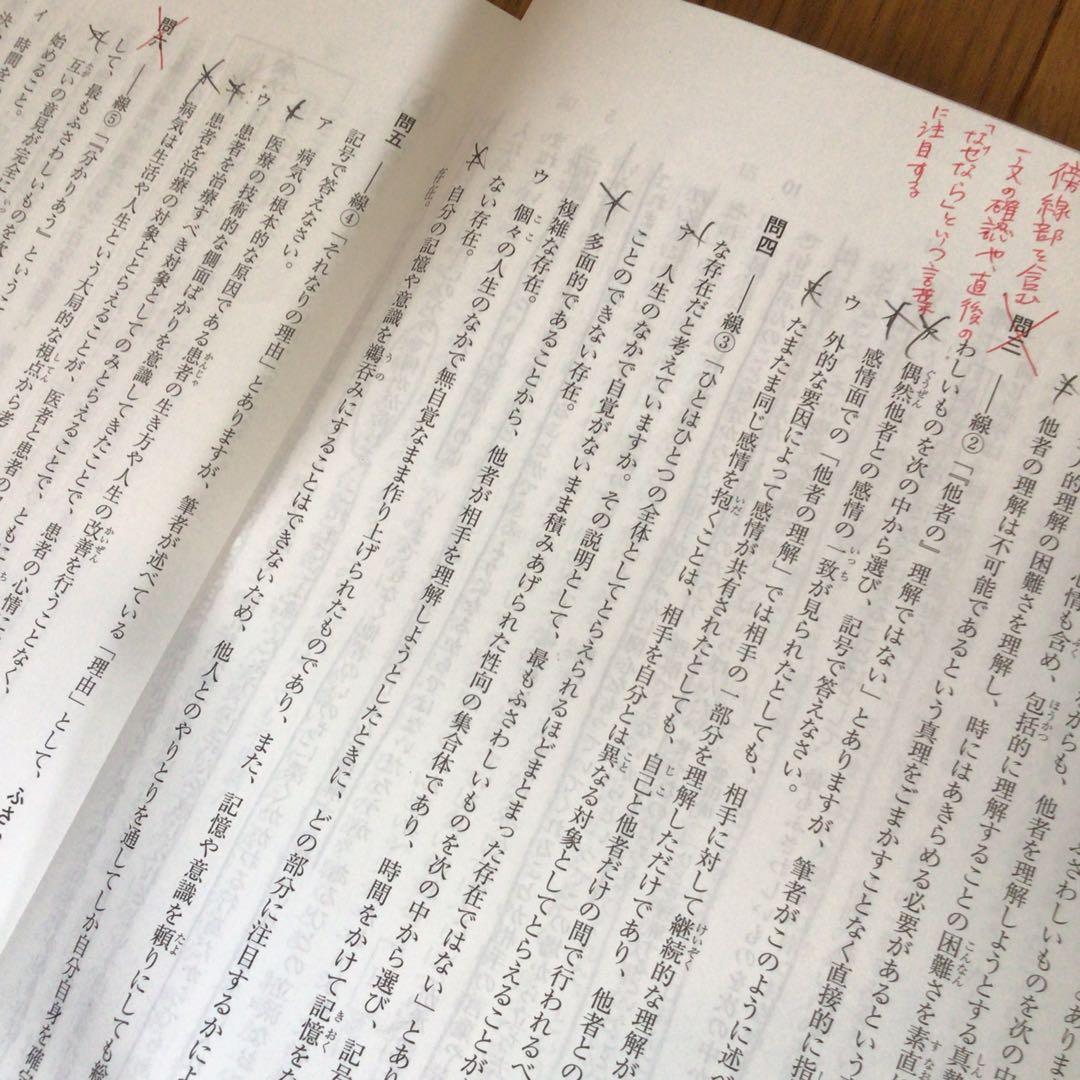 傍線部を含む
一文の確認や、直後の
「なぜなら」という言葉
に注目する
他者の理解は不可能であるという真理をごまかすことなく直接的に指
人的理解の困難さを理解し、時にはあきらめる必要があるという
心情も含め、包括的に理解することの困難さを素直
からも、他者を理解しようとする真摯
ふさわしいものを次の中
問三 ――線②「『他者の』理解ではない」とありますが、筆者がこのように述べ
わしいものを次の中から選び、記号で答えなさい。
偶然他者との感情の一致が見られたとしても、相手に対して継続的な理解が
感情面での「他者の理解」では相手の一部分を理解しただけであり、他者との
ウ 外的な要因によって感情が共有されたとしても、自己と他者だけの間で行われるべ
たまたま同じ感情を抱くことは、相手を自分とは異なる対象としてとらえることが
問四 ――線③「ひとはひとつの全体としてとらえられるほどまとまった存在ではない」とあり
な存在だと考えていますか。その説明として、最もふさわしいものを次の中から選び、記号
ア 人生のなかで自覚がないまま積みあげられた性向の集合体であり、時間をかけて記憶を
ことのできない存在。
多面的であることから、他者が相手を理解しようとしたときに、どの部分に注目するかによ
複雑な存在。
ウ 個々の人生のなかで無自覚なまま作り上げられたものであり、また、記憶や意識を頼りにしても
ない存在。
自分の記憶や意識を鵜呑みにすることはできないため、他人とのやりとりを通してしか自分自身を確
存在。
問五 ――線④「それなりの理由」とありますが、筆者が述べている「理由」として、ふさわ
記号で答えなさい。
ア 病気の根本的な原因である患者の生き方や人生の改善を行うことなく、
医療の技術的な側面ばかりを意識してきたことで、患者の心情に
ウ 患者を治療すべき対象としてのみとらえることが、医者と患者の
病気は生活や人生という大局的な視点から考
問六 ――線⑤「『分かりあう』というこ
して、最もふさわしいものを次
互いの意見が完全に
始めること。
イ 時間を